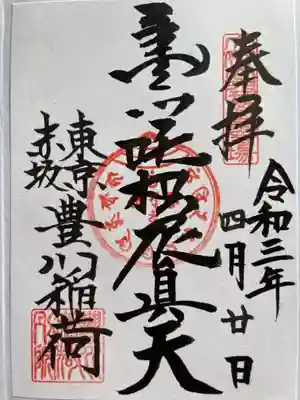 奉拝
令和三年
四月廿日
豊川吒枳尼真天
東京
赤坂
豊川稲荷